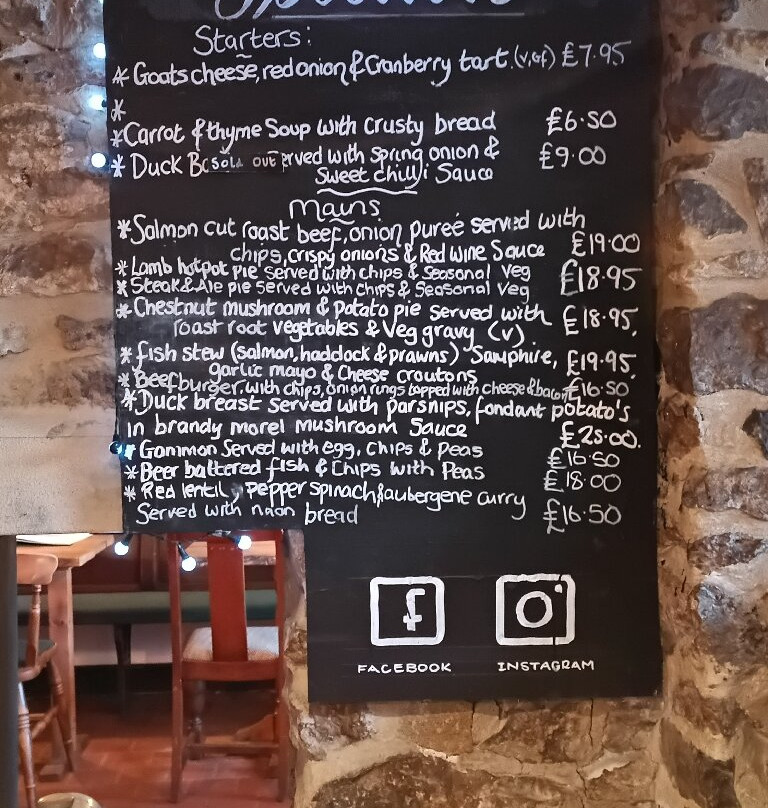 Starters:
* Goats cheese, red onion & Cranberry tart. (v, gf) £7.95
*
* Carrot & thyme Soup with crusty bread £6.50
* Duck SOLD OUT erved with spring onion & £9.00
Sweet chilli Sauce
Mains
* Salmon cut roast beef, onion pureé served with
chips, crispy onions & Red wine Sauce £19.00
* Lamb hotpot pie served with chips & Seasonal Veg
* Steak & Ale pie served with chips & Seasonal Veg £18.95
* Chestnut mushroom & potato pie served with
roast root vegetables & Veg gravy (v). £18.95.
* fish stew (salmon, haddock & prawns) Samphire, £19.95.
garlic mayo & Cheese croutons
* Beef burger, with chips, onion rings topped with cheese & bacon £16.50
* Duck breast served with parsnips, fondant potato's
in brandy morel mushroom Sauce £25.00.
* Gammon Served with egg, Chips & Peas £16.50
* Beer battered fish & Chips with Peas £18.00
* Red lentil, pepper spinach & aubergene curry
Served with naan bread £16.50
FACEBOOK INSTAGRAM